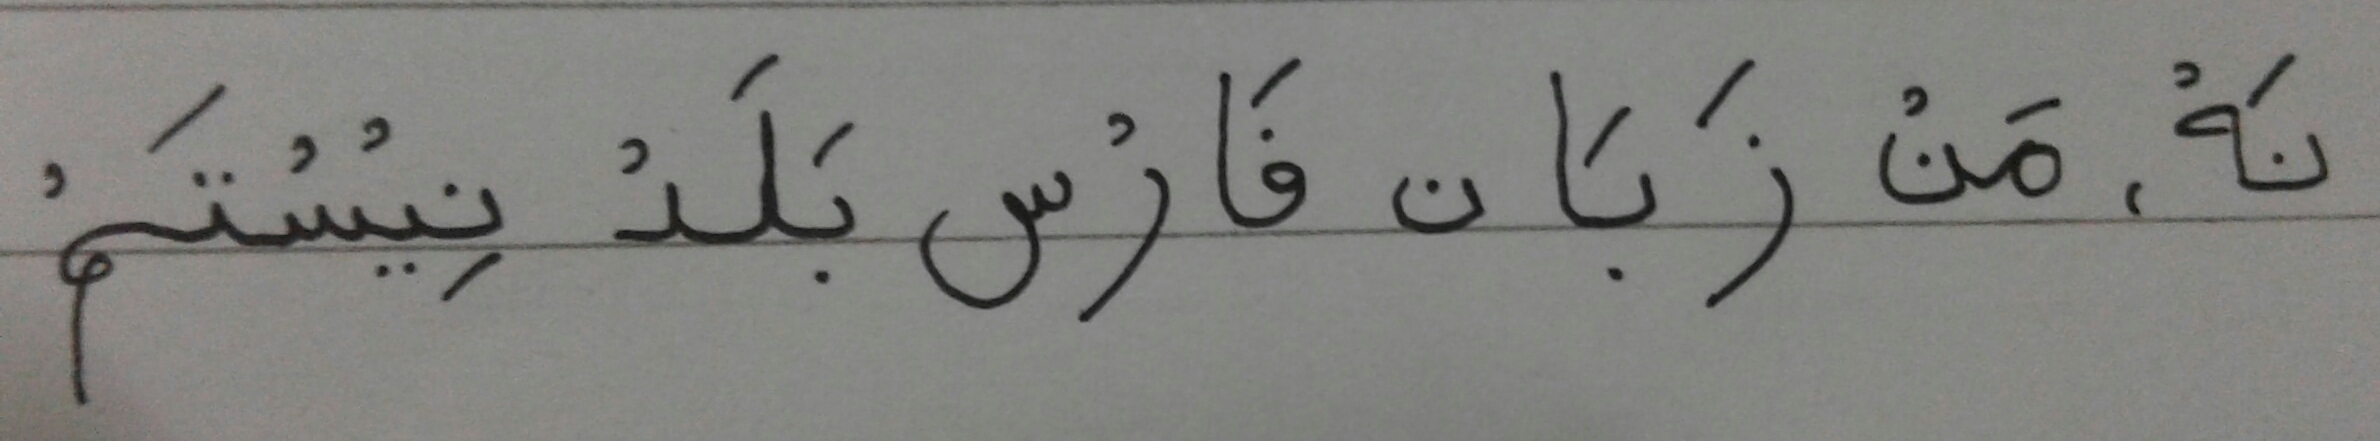 نَهْ، مَنْ زَبَان فَارْس بَلَدْ نِيْسْتَمْ